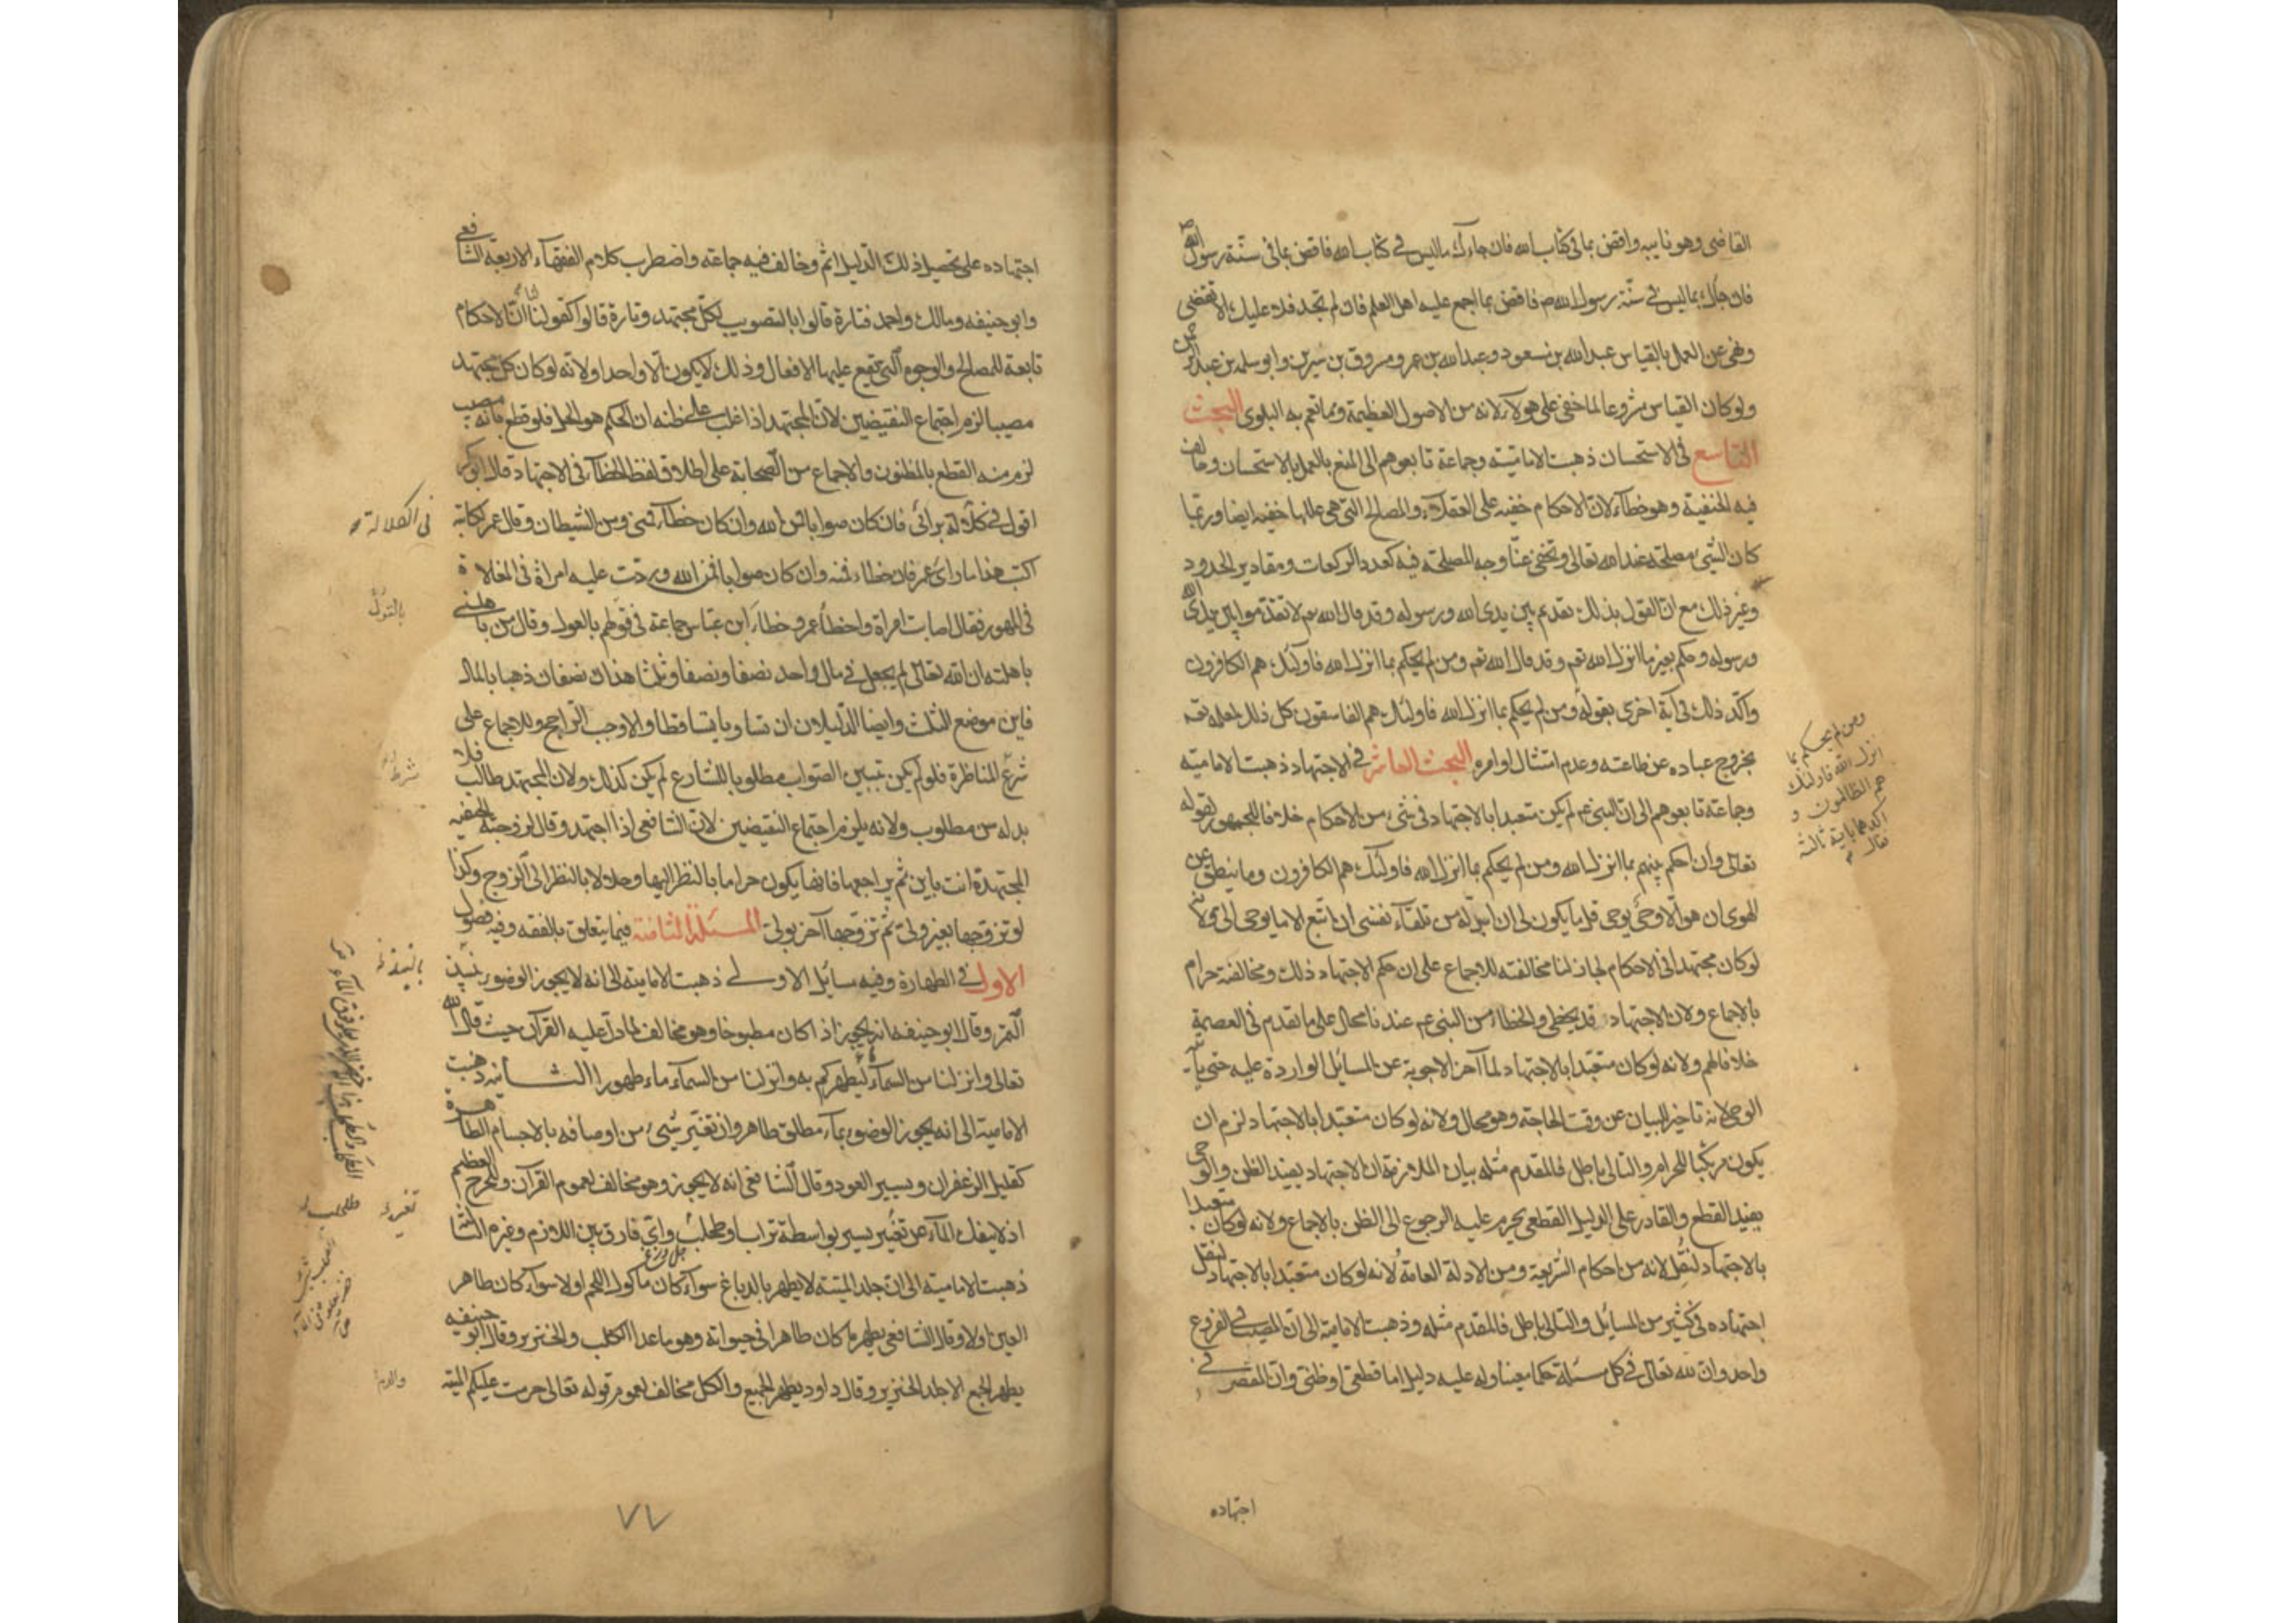 القاضى وهو نايبه واقض بما فى كتاب الله فان جاءك ما ليس فى كتاب الله فاقض بما فى سنّة رسول الله ص
فان جاءك بما ليس فى سنّة رسول الله ص فاقض بما اجمع عليه اهل العلم فان لم تجد فلا عليك الا تقضى
ونهى عن العمل بالقياس عبد الله بن مسعود وعبد الله بن عمر ومسروق بن سيرين وابو سلمه بن عبد الرحمن
ولو كان القياس مشروعا لما خفى على هولاء لانه من الاصول العظيمة ومما تعم به البلوى البحث
التاسع فى الاستحسان ذهبت الاماميّة وجماعة تابعوهم الى المنع بالعمل بالاستحسان وخالف
فيه الحنفية وهو خطاء لان الاحكام خفيه على العقلاء والمصالح التى هى عللها خفيه ايضا وربّما
كان الشئ مصلحة عند الله تعالى ويخفى عنّا وجه المصلحة فيه كعدد الركعات ومقادير الحدود
وغير ذلك مع انّ القول بذلك تقدم بين يدى الله ورسوله وقد قال الله تع لا تقدّموا بين يدى الله
ورسوله وحكم بغير ما انزل الله تعم وقد قال الله تعم ومن لم يحكم بما انزل الله فاولئك هم الكافرون
واكّد ذلك فى آية اخرى بقوله ومن لم يحكم بما انزل الله فاولئك هم الفاسقون كل ذلك لعلمه تعم
بخروج عباده عن طاعته وعدم امتثال اوامره البحث العاشر فى الاجتهاد ذهبت الاماميّه
وجماعة تابعوهم الى انّ النبى عم لم يكن متعبدا بالاجتهاد فى شئ من الاحكام خلافا للجمهور لقوله
تعالى وان احكم بينهم بما انزل الله ومن لم يحكم بما انزل الله فاولئك هم الكافرون وما ينطق عن
الهوى ان هو الّا وحى يوحى قل ما يكون لى ان ابدّله من تلقآء نفسى ان اتّبع الا ما يوحى الى ولانه
لو كان مجتهدا فى الاحكام لجاز لنا مخالفته للاجماع على ان حكم الاجتهاد ذلك ومخالفته حرام
بالاجماع ولان الاجتهاد قد يخطى والخطاء من النبى عم عندنا محال على ما تقدم فى العصمة
خلافا لهم ولانه لو كان متعبّدا بالاجتهاد لما اخر الاجوبة عن المسائل الواردة عليه حتى ياتيه
الوحى لانه تاخير البيان عن وقت الحاجة وهو محال ولانه لو كان متعبّدا بالاجتهاد لزم ان
يكون مرتكبا للحرام والتالى باطل فالمقدم مثله بيان الملازمة ان الاجتهاد يفيد الظن والوحى
يفيد القطع والقادر على الدليل القطعى يحرم عليه الرجوع الى الظن بالاجماع ولانه لو كان متعبدا
بالاجتهاد لنقل لانه من احكام الشريعة ومن الادلة العامة ولانه لو كان متعبّدا بالاجتهاد لنقل
اجتهاده فى كثير من المسائل والتالى باطل فالمقدم مثله وذهبت الامامية الى ان المصيب فى الفروع
واحد وان لله تعالى فى كل مسئلة حكما معينا وله عليه دليل اما قطعى او ظنى وان المقصر فى
ومن لم يحكم بما
انزل الله فاولئك
هم الظالمون و
اكدهما باية ثالثة
فقال
اجتهاده
اجتهاده على تحصيل ذلك الدليل اثم وخالف فيه جماعة واضطرب كلام الفقهآء الاربعة الشافعى
وابو حنيفه ومالك واحمد فتارة قالوا بالتصويب لكلّ مجتهد وتارة قالوا كقولنا لنا انّ الاحكام
تابعة للمصالح والوجوه التى تقع عليها الافعال وذلك لا يكون الّا واحدا ولانه لو كان كل مجتهد
مصيبا لزم اجتماع النقيضين لان المجتهد اذا غلب على ظنه ان الحكم هو الحل فلو قطع بانه مصيب
لزم منه القطع بالمظنون والاجماع من الصحابة على اطلاق لفظ الخطآء فى الاجتهاد قال ابو بكر
اقول فى كلالة برائى فان كان صوابا فمن الله وان كان خطآء فمنى ومن الشيطان وقال عمر لكاتبه
اكتب هذا ما راى عمر فان خطاء فمنه وان كان صوابا فمن الله وردّت عليه امراة فى المغلاة
فى المهور فقال اصابت امراة واخطأ عمر وخطاء ابن عباس جماعة فى قولهم بالعول وقال من باهلنى
باهلته ان الله تعالى لم يجعل فى مال واحد نصفا ونصفا وثلثا هذان نصفان ذهبا بالمال
فاين موضع الثلث وايضا الدّليلان ان تساويا تساقطا والا وجب الراجح وللاجماع على
شرع المناظرة فلو لم يكن تبيين الصواب مطلوبا للشارع لم يكن كذلك ولان المجتهد طالب فلا
بد له من مطلوب ولانه يلزم اجتماع النقيضين لان الشافعى اذا اجتهد وقال لزوجته الحنفيه
المجتهدة انت باين ثم يراجعها فانها يكون حراما بالنظر اليها وحلالا بالنظر الى الزوج وكذا
لو تزوجها بغير ولى ثم تزوجها آخر بولى المسئلة الثامنة فيما يتعلق بالفقه وفيه فصول
الاول فى الطهارة وفيه مسايل الاولى ذهبت الاماميّه الى انه لا يجوز الوضوء بنبيذ
التمر وقال ابو حنيفه انه يجوز اذا كان مطبوخا وهو مخالف لما دلّ عليه القرآن حيث قال الله
تعالى وانزلنا من السمآء ماء ليطهركم به وانزلنا من السمآء ماء طهورا الثانيه ذهبت
الامامية الى انه يجوز الوضوء بمآء مطلق طاهر وان تغيّر شئ من اوصافه بالاجسام الطاهرة
كقليل الزعفران ويسير العود وقال الشافعى انه لا يجوز وهو مخالف لعموم القرآن وللحرج العظيم
اذ لا ينفك المآء عن تغيّر يسير بواسطة تراب او طحلب واىّ فارق بين اللازم وغيره الثالثه
ذهبت الامامية الى ان جلد الميتة لا يطهر بالدباغ سوآء كان ماكول اللحم اولا سوآء كان طاهر
العين اولا وقال الشافعى يطهر ما كان طاهرا فى حيواته وهو ما عدا الكلب والخنزير وقال ابو حنيفه
يطهر الجميع الا جلد الخنزير وقال داود يطهر الجميع والكل مخالف لعموم قوله تعالى حرمت عليكم الميتة
فى الكلالة
شرط
تغيره
طحلب
والدم
٧٧